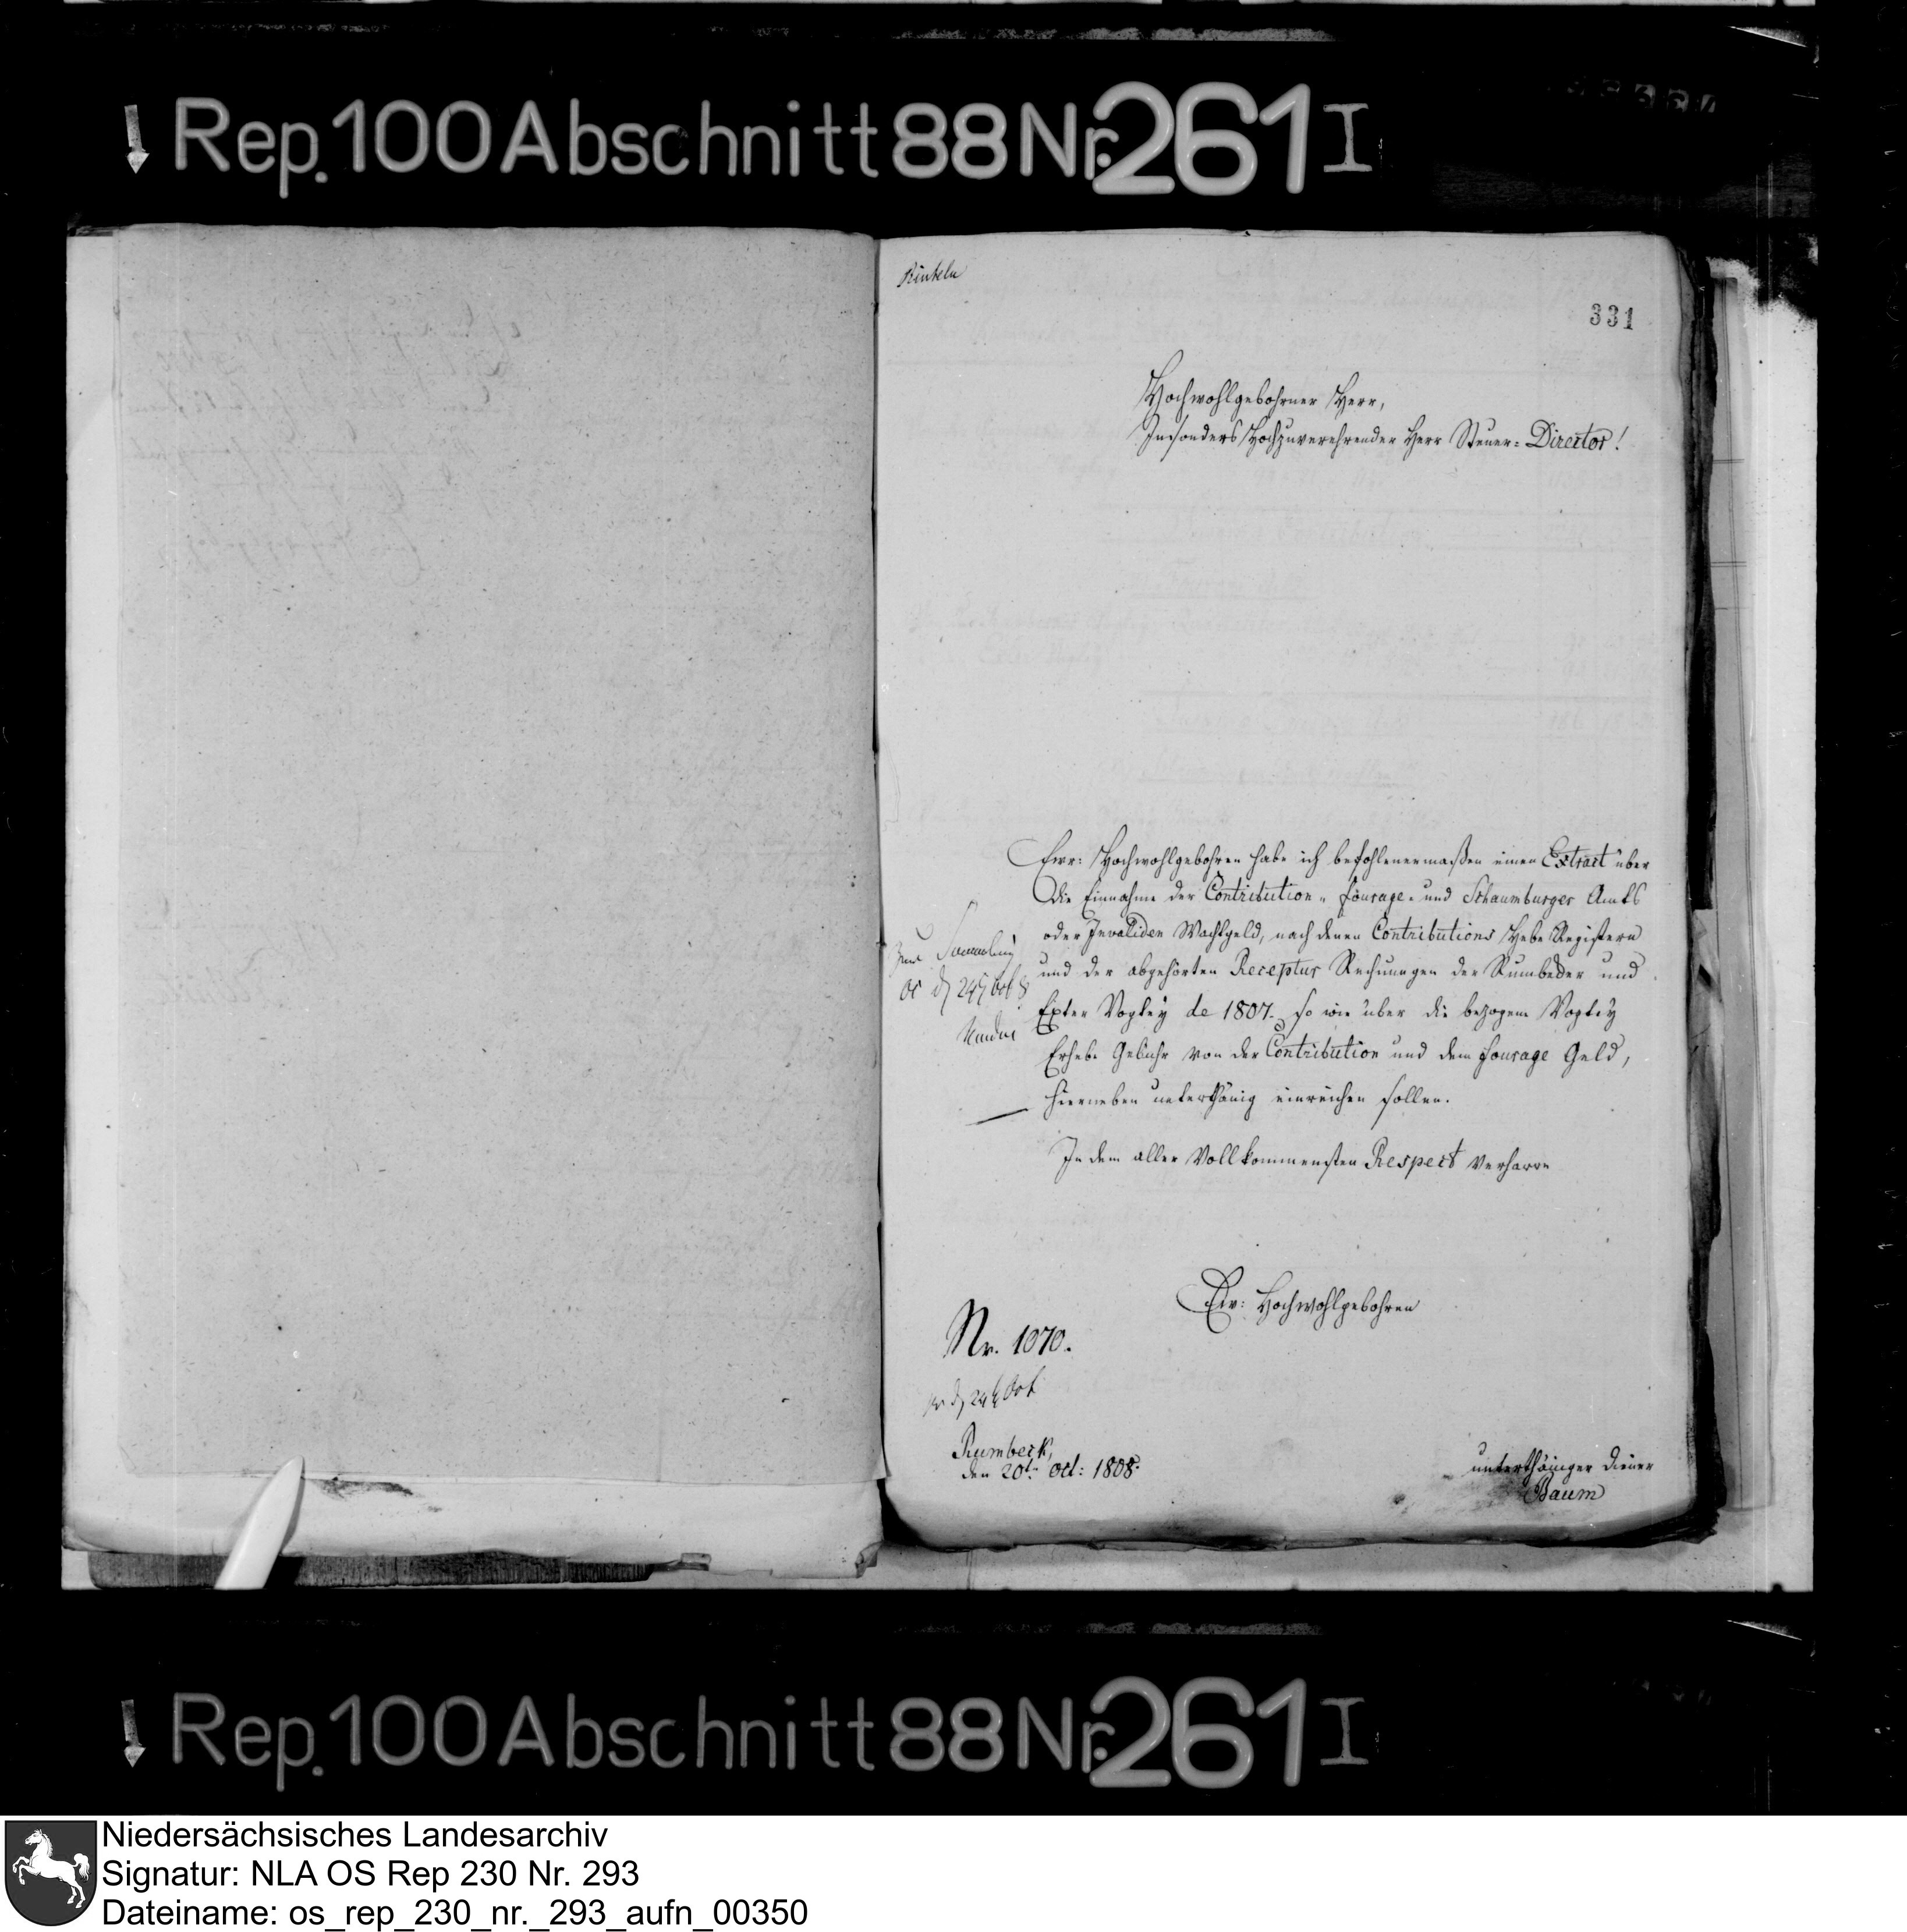 Rep. 100 Abschnitt 88 Nr. 261 I
Rinteln
331
Hochwohlgebohrner Herr,
Insonders Hochzuverehrender Herr Steuer-Director!
Ewr: Hochwohlgebohren habe ich befohlenermaßen einen Extract über
die Einnahme der Contribution- fourage- und Schaumburger Amts
oder Invaliden Wachtgeld, nach denen Contributions Hebe Registern
und der abgehörten Receptur Rechnungen der Rumbecker und
Exter Vogtey de 1807. so wie über die bezogene Vogtey
Erhebe Gebühr von der Contribution und dem fourage Geld,
hierneben unterthänig einreichen sollen.
In dem aller Vollkommensten Respect verharre
zur Sammlung
d 24t Oct 8
Ew: Hochwohlgebohren
Nr. 1070.
d 24t Oct
Rumbeck,
den 20t. Oct: 1808.
unterthäniger Diener
Baum
Rep. 100 Abschnitt 88 Nr. 261 I
Niedersächsisches Landesarchiv
Signatur: NLA OS Rep 230 Nr. 293
Dateiname: os_rep_230_nr._293_aufn_00350